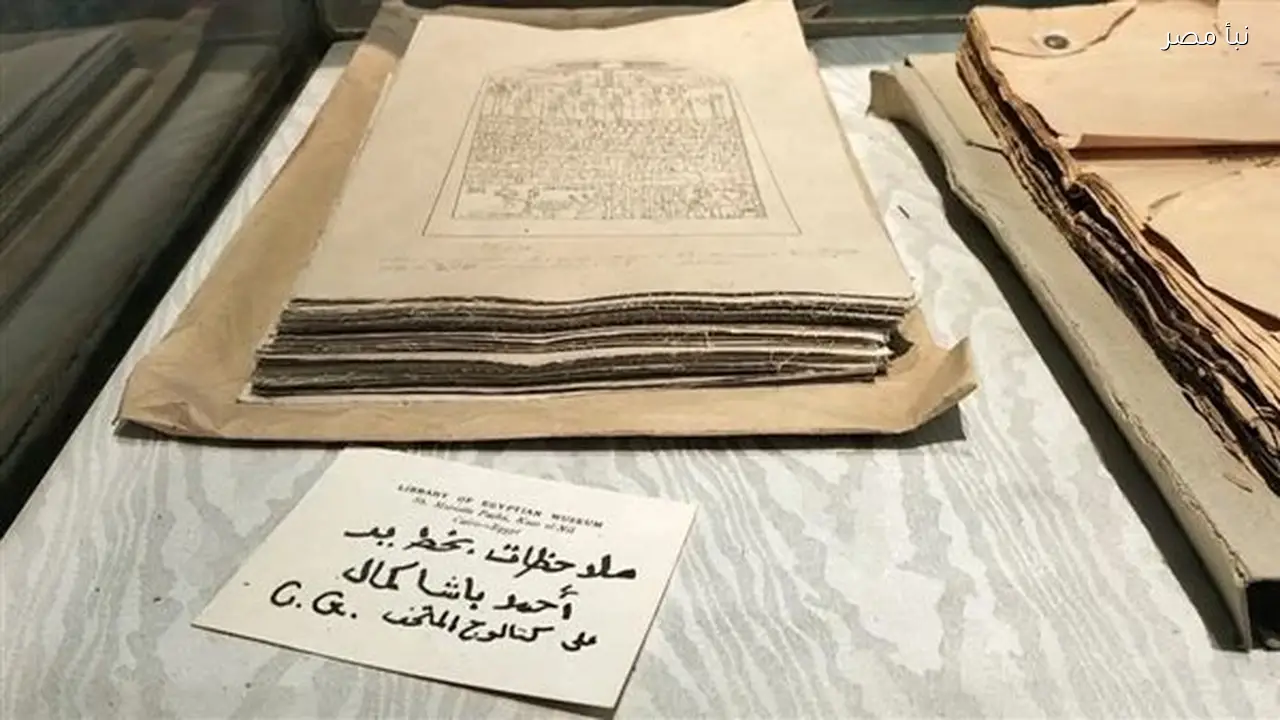 نبأ مصر
LIBRARY OF EGYPTIAN MUSEUM
Sh. Mariette Pasha, Kasr el-Nil
Cairo-Egypt
ملاحظات بخط يد
أحمد باشا كمال
على كتالوج المتحف C.G.